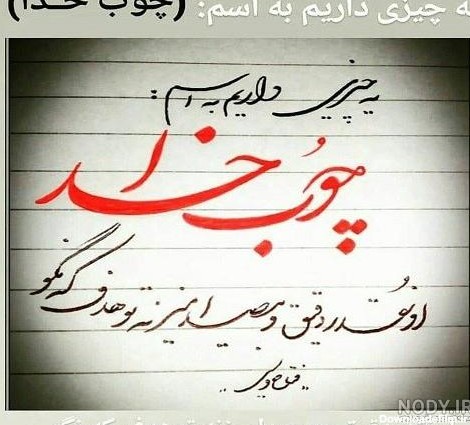 یه چیزی داریم به اسم: (چوب خدا)
یه چیزی داریم به اسم :
چوب خدا
اونقدر دقیق و بیصدا میزنه تو هدف که نگو
NODY.IR